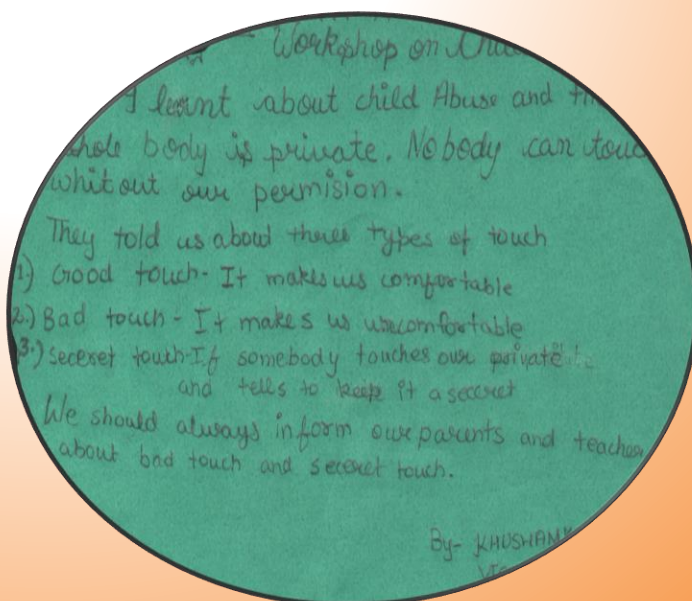 Workshop on
I learnt about child Abuse and
whole body is private. Nobody can touc
whitout our permision.
They told us about threes types of touch
1.) Good touch- It makes us comfortable
2.) Bad touch - It makes us uncomfortable
3.) Seceret touch-If somebody touches our private
and tells to keep it a seceret
We should always inform our parents and teacher
about bad touch and seceret touch.
By- KHUSHAN